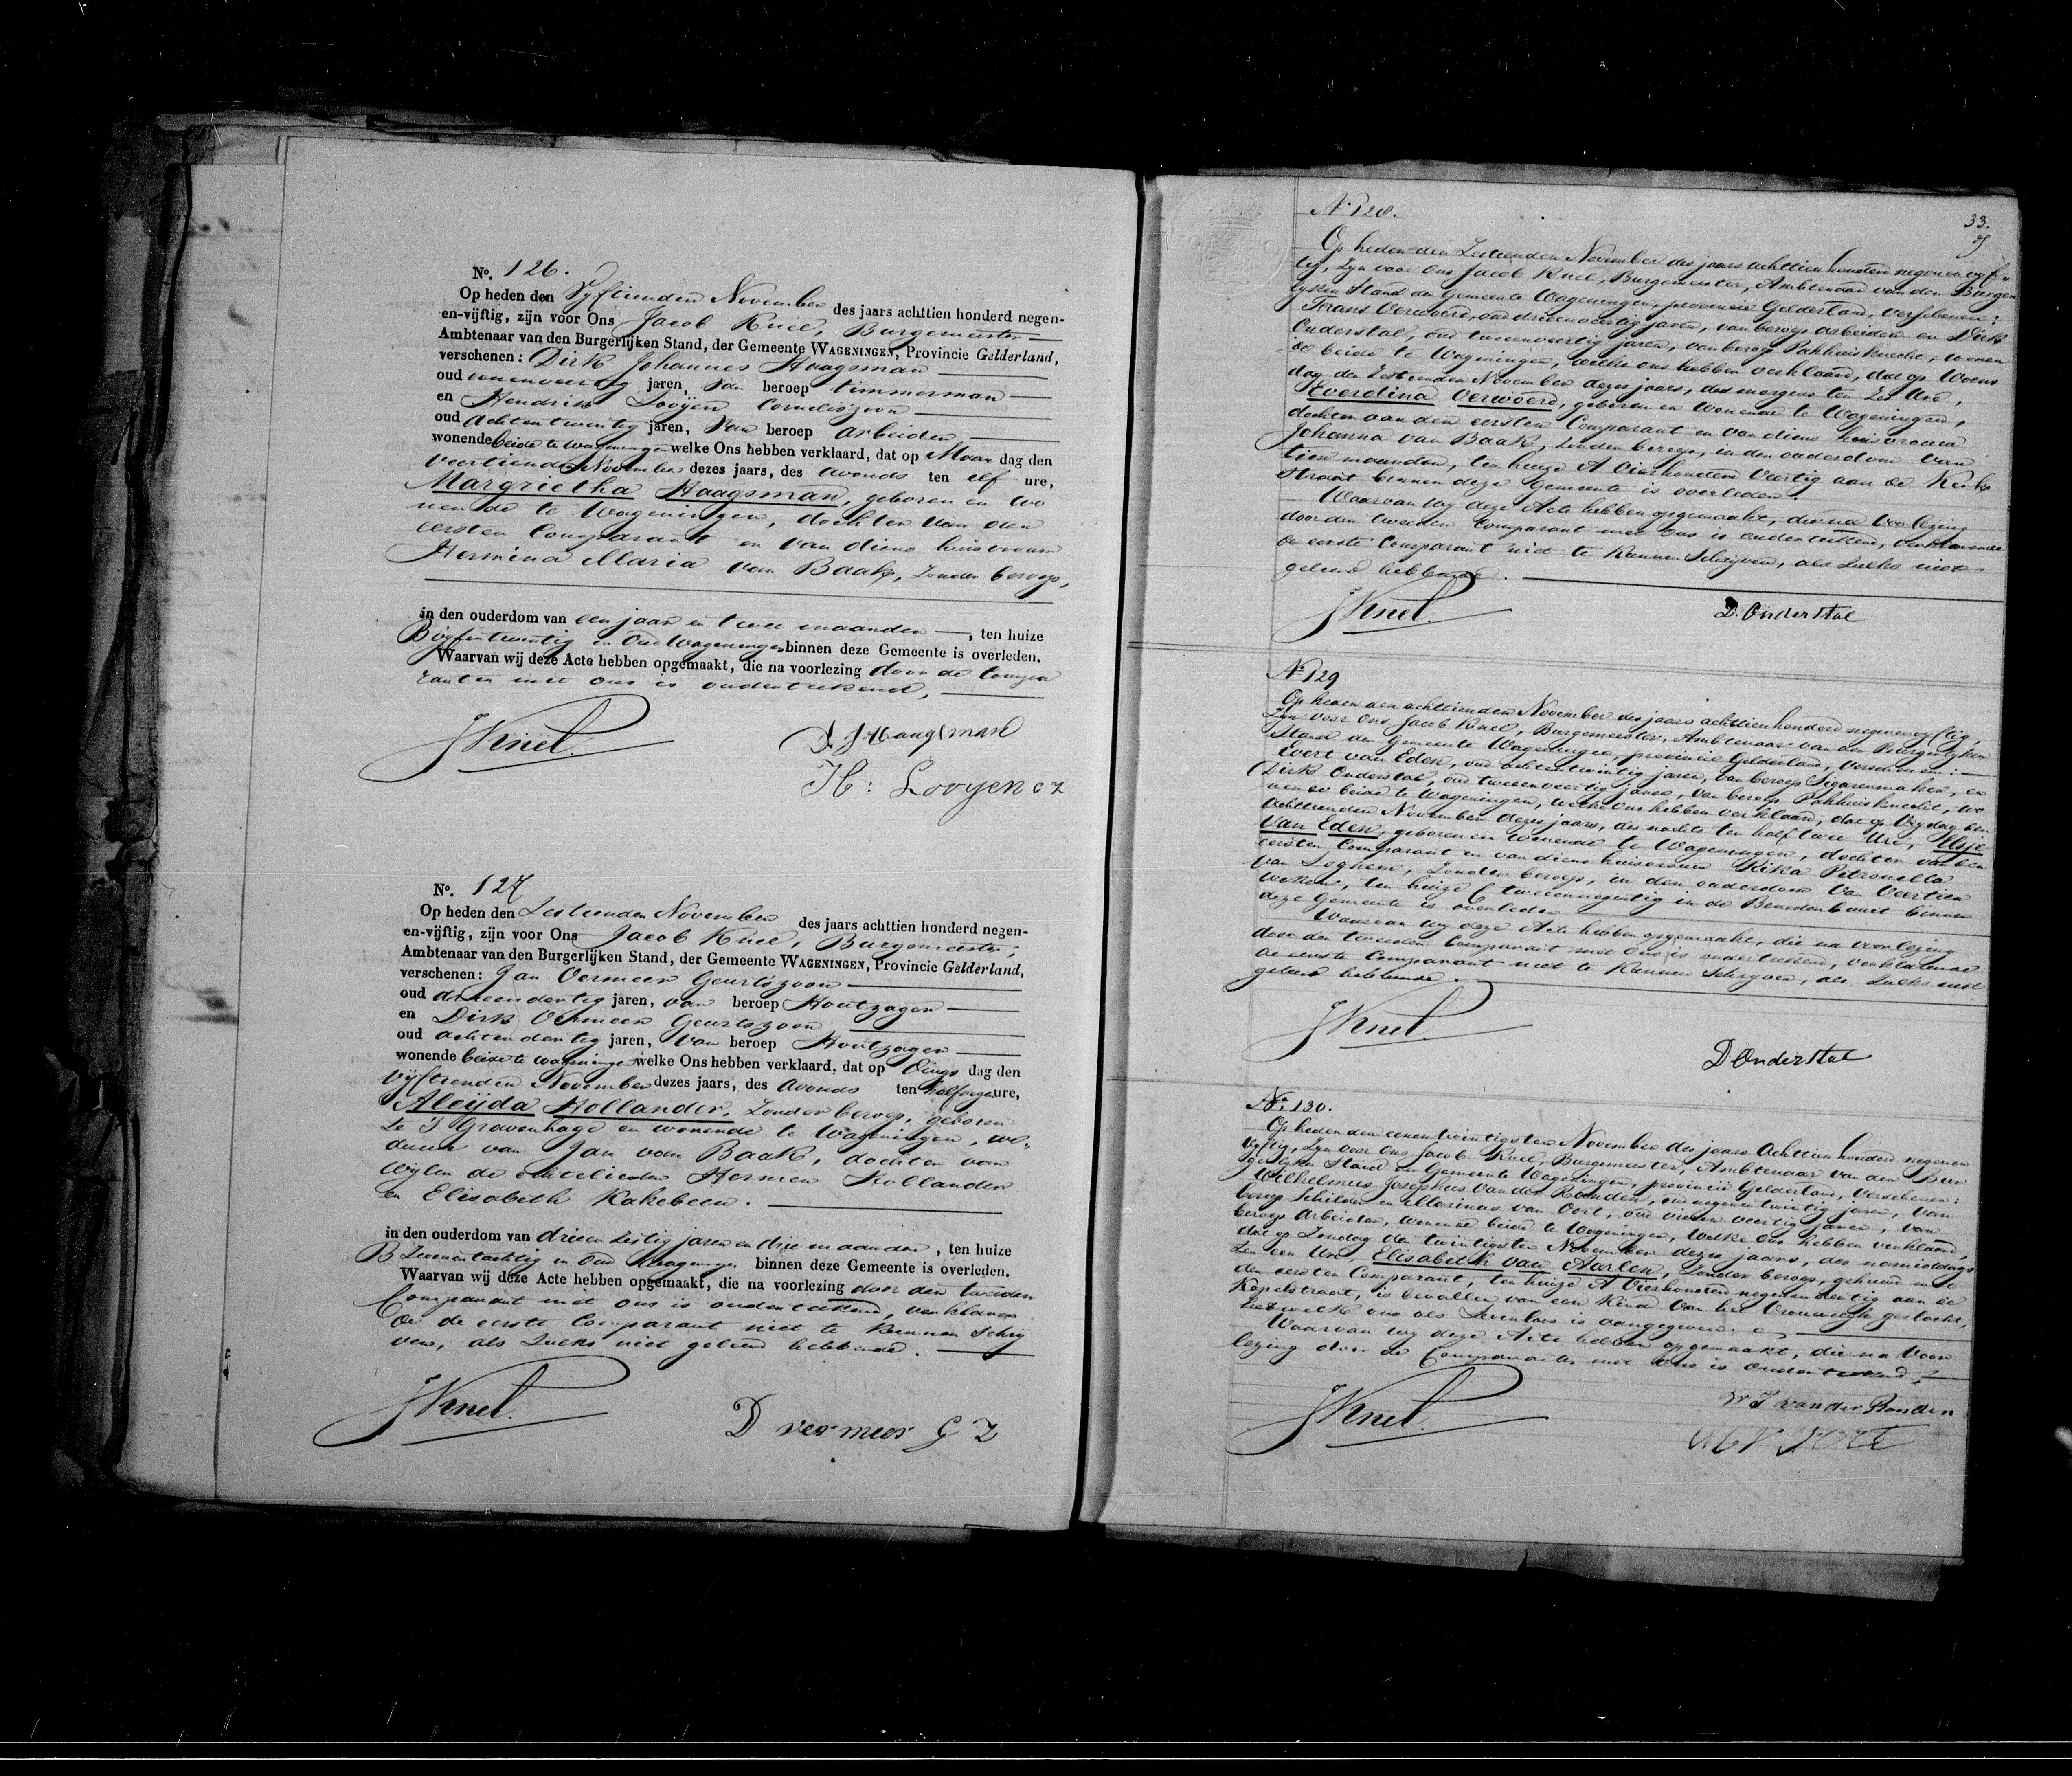 No. 126.
Op heden den Vyftienden November des jaars achttien honderd negen-
en-vijftig, zijn voor Ons Jacob Knel, Burgemeester
Ambtenaar van den Burgerlijken Stand, der Gemeente WAGENINGEN, Provincie Gelderland,
verschenen: Dirk Johannes Haagsman
oud eenenveertig jaren, van beroep timmerman
en Hendrik Looijen Corneliszoon
oud achtentwintig jaren, van beroep arbeider
wonende beide te wageningen welke Ons hebben verklaard, dat op Maan dag den
veertienden November dezes jaars, des avonds ten elf ure,
Margrietha Haagsman, geboren en wo
nende te Wageningen, dochter van den
eersten Comparant en van diens huisvrouw
Hermina Maria van Baak, zonder beroep,
in den ouderdom van een jaar en twee maanden, ten huize
B vyfentwintig in Oud Wageningen binnen deze Gemeente is overleden.
Waarvan wij deze Acte hebben opgemaakt, die na voorlezing door de Compa
ranten met ons is onderteekend,
JKnel.
D. J Haagsman
H: Looyen C Z
No. 127
Op heden den Zestienden November des jaars achttien honderd negen-
en-vijftig, zijn voor Ons Jacob Knel, Burgemeester,
Ambtenaar van den Burgerlijken Stand, der Gemeente WAGENINGEN, Provincie Gelderland,
verschenen: Jan Vermeer Geurtszoon
oud drieendertig jaren, van beroep Houtzager
en Dirk Vermeer Geurtszoon
oud achtendertig jaren, van beroep Houtzager
wonende beide te wageningen welke Ons hebben verklaard, dat op Dings dag den
vyftienden November dezes jaars, des avonds ten half ure,
Aleijda Hollander, zonder beroep, geboren
te S Gravenhage en wonende te Wageningen, we-
duwe van Jan van Baak, dochter van
wylen de echtelieden Hermen Hollander
en Elisabeth Kakebeen.
in den ouderdom van drieenzestig jaren en drie maanden, ten huize
B zevenentachtig in Oud Wageningen binnen deze Gemeente is overleden.
Waarvan wij deze Acte hebben opgemaakt, die na voorlezing door den tweeden
Comparant met ons is onderteekend, verklaren
de de eerste Comparant niet te kunnen schry
ven, als zulks niet geleerd hebbende.
JKnel.
D vermeer G Z
33.
No 128.
Op heden den Zestienden November des jaars achttien honderd negenenvyf-
tig, zyn voor Ons Jacob Knel, Burgemeester, Ambtenaar van den Burger
lyken Stand der Gemeente Wageningen, provincie Gelderland, verschenen:
Frans Verwoerd, oud drieenveertig jaren, van beroep arbeider en Dirk
Onderstal, oud tweeenveertig jaren, van beroep Pakhuisknecht, wonen
de beide te Wageningen, welke ons hebben verklaard, dat op Woens
dag den Zestienden November dezes jaars, des morgens ten zes Ure,
Everdina Verwoerd, geboren en wonende te Wageningen,
dochter van den eersten Comparant en van diens huisvrouw
Johanna van Baak, zonder beroep, in den ouderdom van
tien maanden, ten huize A vierhonderd veertig aan de Kerk
straat binnen deze Gemeente is overleden.
Waarvan wy deze Acte hebben opgemaakt, die na voorlezing
door den tweeden Comparant met Ons is onderteekend, verklarende
de eerste Comparant niet te kunnen schrijven, als zulks niet
geleerd hebbende.
JKnel.
D. Onderstal
No 129
Op heden den achttienden November des jaars achttien honderd negenenvyftig,
zyn voor Ons Jacob Knel, Burgemeester, Ambtenaar van den Burgerlyken
Stand der Gemeente Wageningen, provincie Gelderland, verschenen:
Evert van Eden, oud achtentwintig jaren, van beroep Sigarenmaker, en
Dirk Onderstal, oud tweeenveertig jaren, van beroep Pakhuisknecht, wo
nende beide te Wageningen, welke ons hebben verklaard, dat op Vrydag den
achttienden November dezes jaars, des nachts ten half twee Ure,
van Eden, geboren en wonende te Wageningen, dochter van den
eersten Comparant en van diens huisvrouw Rika Petronella
van Leghene, zonder beroep, in den ouderdom van veertien
weken, ten huize C tweeennegentig in de Benedenbuurt binnen
deze Gemeente is overleden
Waarvan wy deze Acte hebben opgemaakt, die na voorlezing
door den tweeden Comparant met Ons is onderteekend, verklarende
de eerste Comparant niet te kunnen schryven, als zulks niet
geleerd hebbende.
JKnel.
D Onderstal
No. 130.
Op heden den eenentwintigsten November des jaars Achttien honderd negenen
vyftig, zyn voor Ons Jacob Knel, Burgemeester, Ambtenaar van den Bur
gerlyken Stand der Gemeente Wageningen, provincie Gelderland, verschenen:
Wilhelmus Josephus van der Ronden, oud negenentwintig jaren, van
beroep Schilder en Marinus van Oort, oud vierenveertig jaren, van
beroep Arbeider, wonende beide te Wageningen, welke Ons hebben verklaard,
dat op Zondag den twintigsten November dezes jaars, des namiddags
ten een Ure, Elisabeth van Aarlen, zonder beroep, gehuwd met
den eersten Comparant, ten huize A Vierhonderd negenendertig aan de
Kapelstraat, is bevallen van een Kind van het Vrouwelyk geslacht,
hetwelk ons als levenloos is aangegeven.
Waarvan wy deze Acte hebben opgemaakt, die na voor
lezing door de Comparanten met Ons is onderteekend,
JKnel.
W J van der Ronden
M V Oort